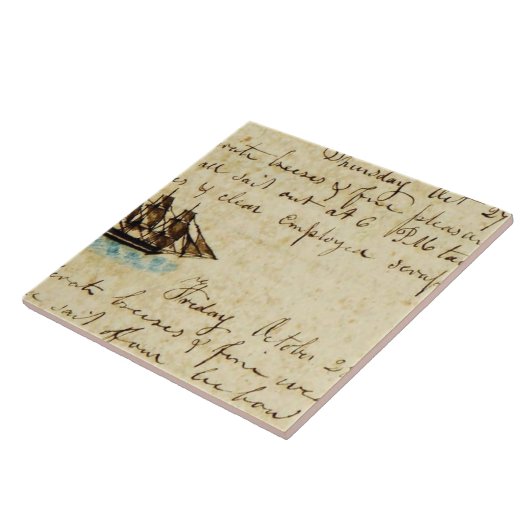 Thursday Oct 2
breezes & fine pleasan
all sail out at 6 PM ta
& clear Employed scrap
Friday October 2
breezes & fine we
sail